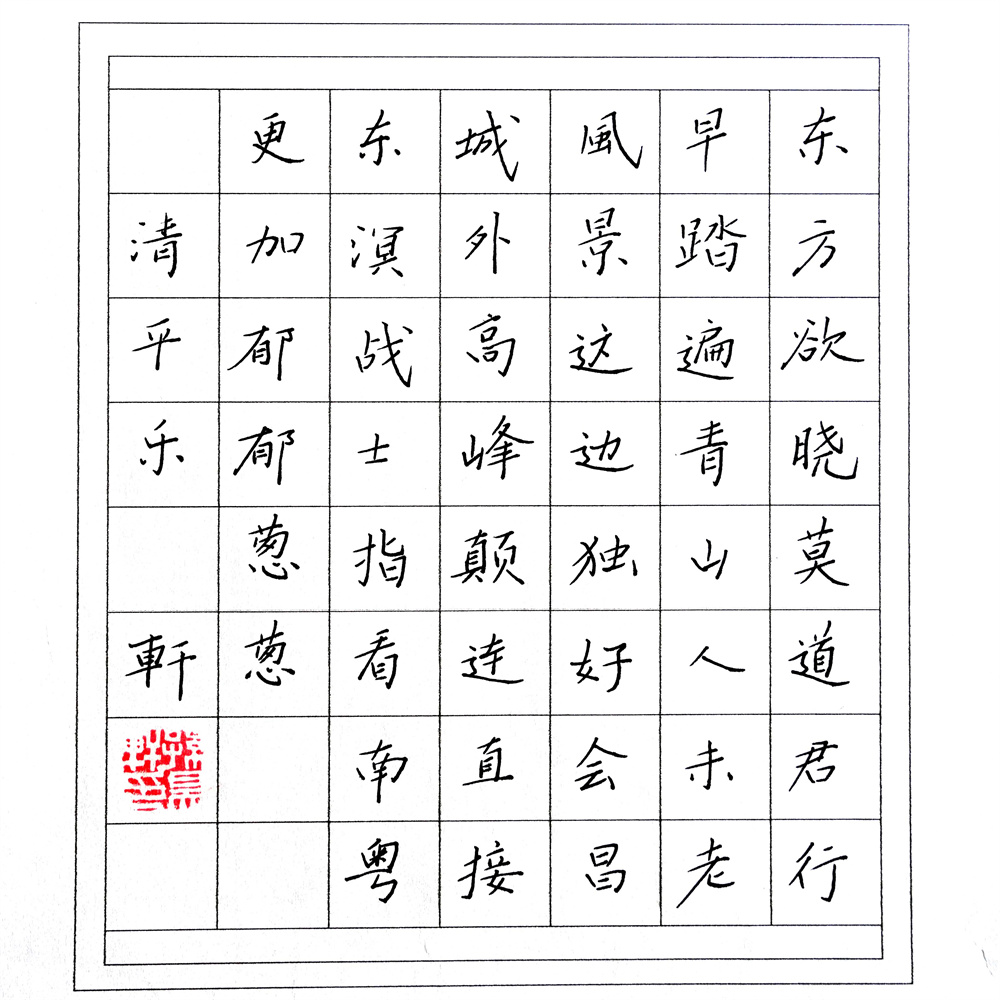 东方欲晓莫道君行
早踏遍青山人未老
風景这边独好会昌
城外高峰颠连直接
东溟战士指看南粤
更加郁郁葱葱
清平乐 軒